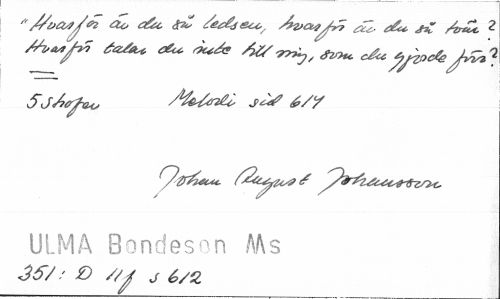 "Hvarför är du så ledsen, hvarför är du så tvär?
Hvarför talar du inte till mig, som du gjorde förr?
5 strofer Melodi sid 614
Johan August Johansson
ULMA Bondeson Ms
351: D 11f s 612